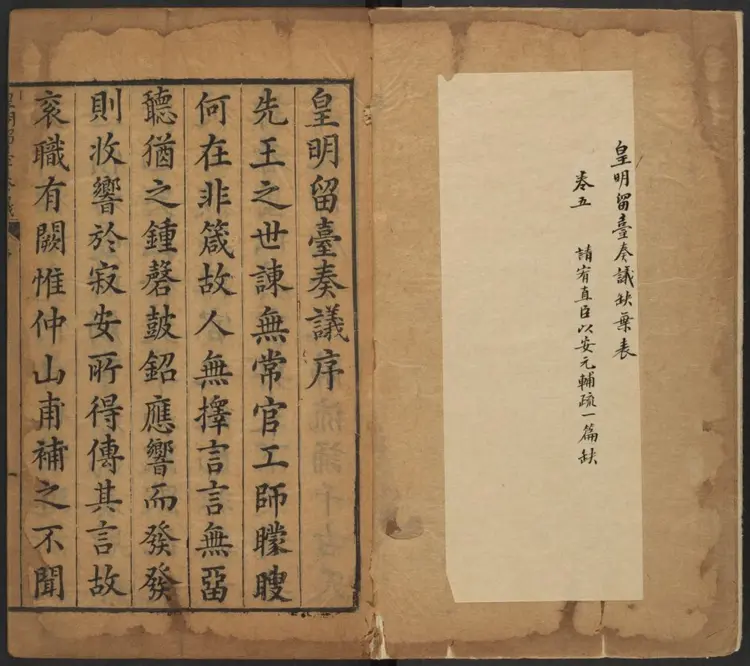 皇明留臺奏議缺葉表
卷五　請宥直臣以安元輔疏一篇缺
皇明留臺奏議序
先王之世諫無常官工師矇瞍
何在非箴故人無擇言言無畱
聽猶之鍾磬鼓鉊應響而發發
則收響於寂安所得傳其言故
衮職有闕惟仲山甫補之不聞
皇明留臺奏議